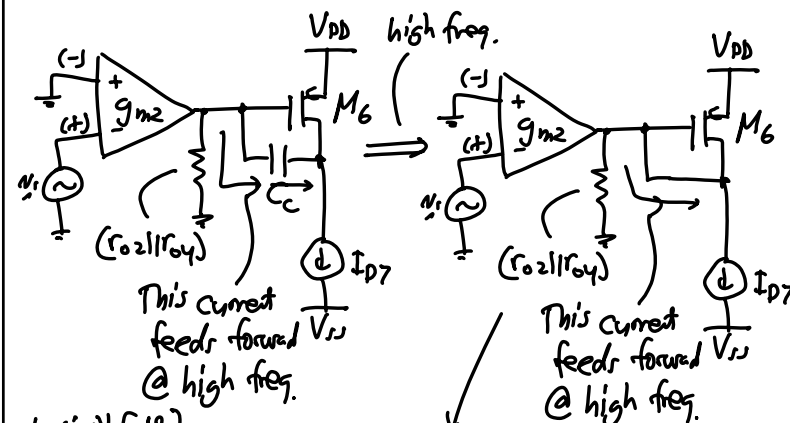 high freq.
VDD
(-)
+
gm2
-
(+)
M6
Vi
Cc
(ro2||ro4)
ID7
VSS
This current
feeds forward
@ high freq.
VDD
(-)
+
gm2
-
(+)
M6
Vi
(ro2||ro4)
ID7
VSS
This current
feeds forward
@ high freq.